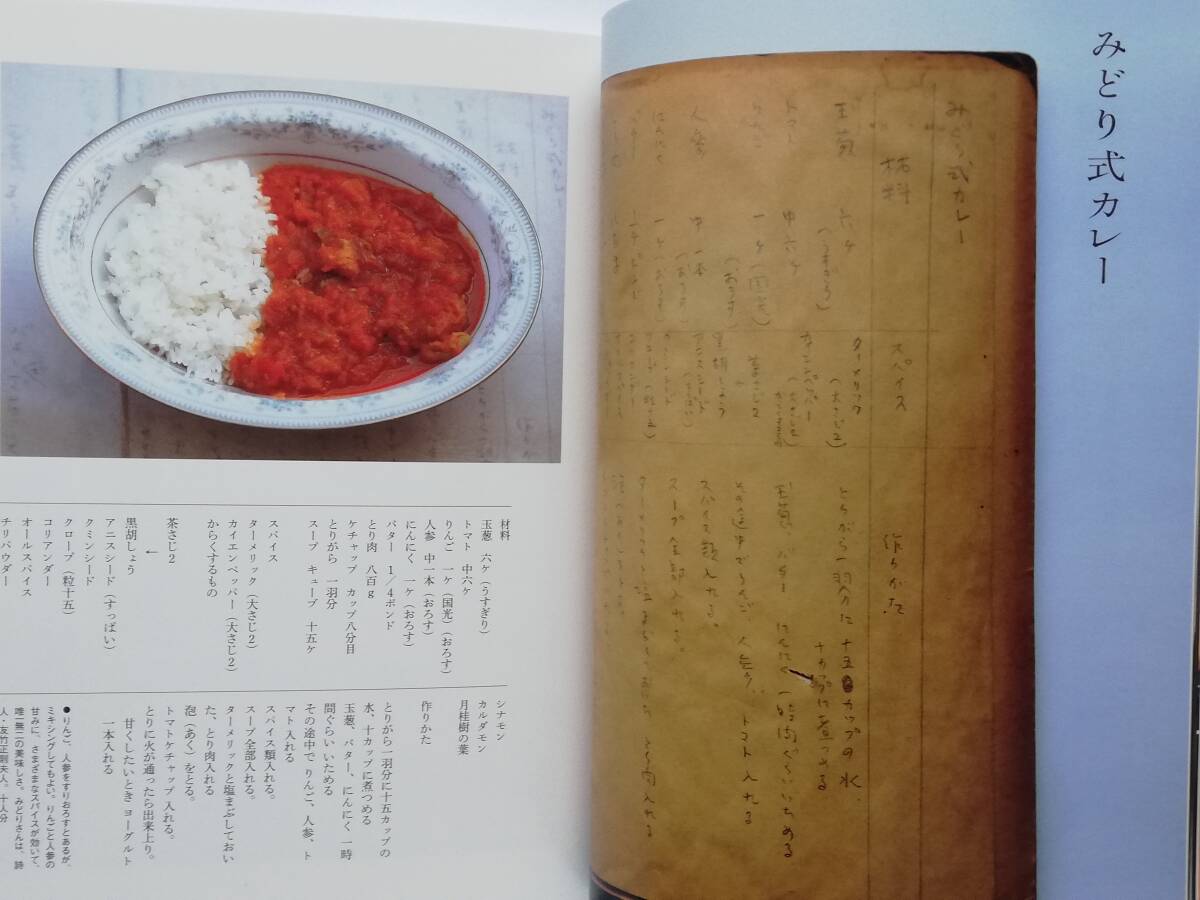 みどり式カレー
みどり式カレー
材料
玉葱 六ケ(うすぎり)
トマト 中六ケ
りんご 一ケ(国光)(おろす)
人参 中一本(おろす)
にんにく 一ケ(おろす)
スパイス
ターメリック(大さじ2)
カイエンペッパー(大さじ2)
からくするもの
茶さじ2
黒胡しょう
アニスシード(すっぱい)
作りかた
とりがら一羽分に十五カップの水、
十カップに煮つめる
玉葱、バター にんにく 一時間ぐらいいためる
その途中でりんご、人参、トマト入れる
スパイス類入れる。
スープ全部入れる。
材料
玉葱 六ケ(うすぎり)
トマト 中六ケ
りんご 一ケ(国光)(おろす)
人参 中一本(おろす)
にんにく 一ケ(おろす)
バター 1/4ポンド
とり肉 八百g
ケチャップ カップ八分目
とりがら 一羽分
スープ キューブ 十五ケ
スパイス
ターメリック(大さじ2)
カイエンペッパー(大さじ2)
からくするもの
茶さじ2
↓
黒胡しょう
アニスシード(すっぱい)
クミンシード
クローブ(粒十五)
コリアンダー
オールスパイス
チリパウダー
シナモン
カルダモン
月桂樹の葉
作りかた
とりがら一羽分に十五カップの
水、十カップに煮つめる
玉葱、バター、にんにく 一時
間ぐらい いためる
その途中で りんご、人参、ト
マト入れる
スパイス類入れる。
スープ全部入れる。
ターメリックと塩まぶしておい
た、とり肉入れる
泡(あく)をとる。
トマトケチャップ 入れる。
とりに火が通ったら出来上り。
甘くしたいとき ヨーグルト
一本入れる
●りんご、人参をすりおろすとあるが、
ミキシングしてもよい。りんごと人参の
甘みに、さまざまなスパイスが効いて、
唯一無二の美味しさ。みどりさんは、詩
人・友竹正則夫人。十人分